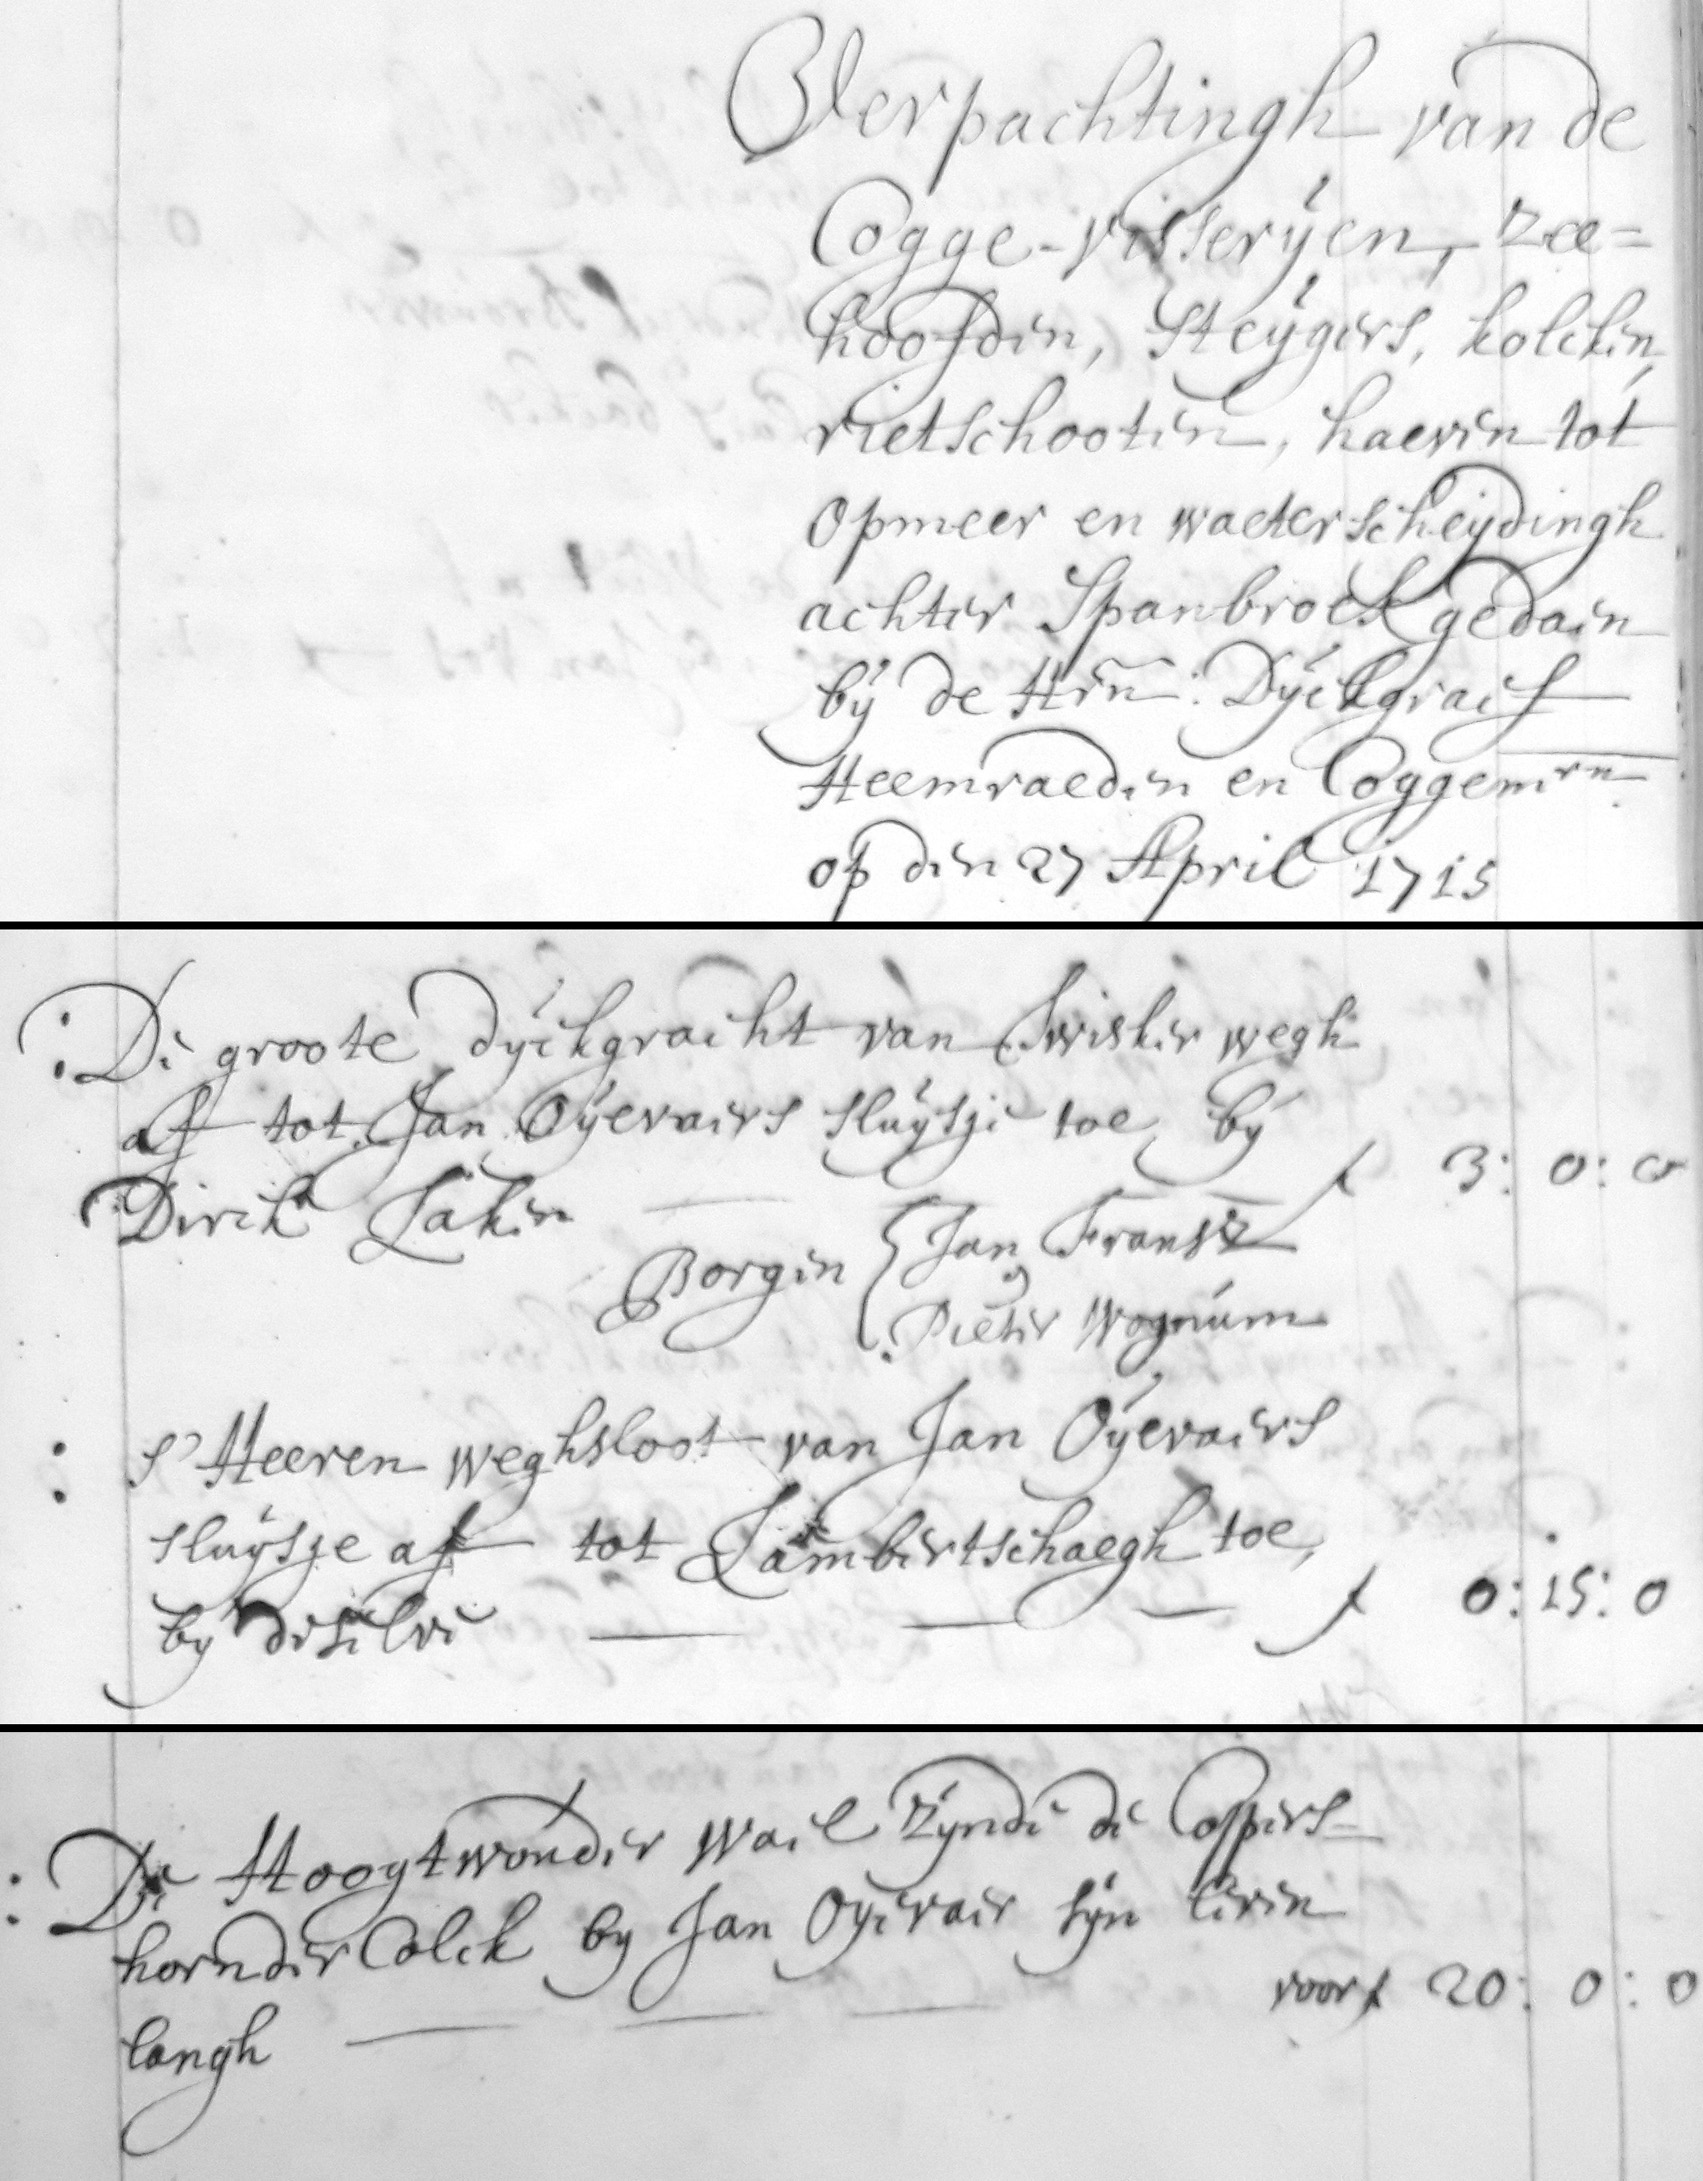 Verpachtingh van de
Cogge-visserÿen, zee=
hoofden, Steÿgers, kolcken,
rietschooten, haeven tot
opmeer en waeterscheÿdingh
achter Spanbroek gedaen
bÿ de Hrn: Dÿckgraef
Heemraeden en Coggemrn
op den 27 April 1715
: De groote dÿckgracht van Swisker wegh
af tot Jan Oÿevaers sluÿsje toe, bÿ
Dirck Laken f 3: 0: 0
Borgen { Jan Fransz
Pieter Wognum
: s' Heeren weghsloot van Jan Oÿevaers
sluÿsje af tot Lambertschaegh toe,
bÿ deselve f 0: 15: 0
: De Hoogtwouder Wael zÿnde de Coppers-
hornder Colck by Jan Oÿevaer sÿn leven
langh voor f 20: 0: 0